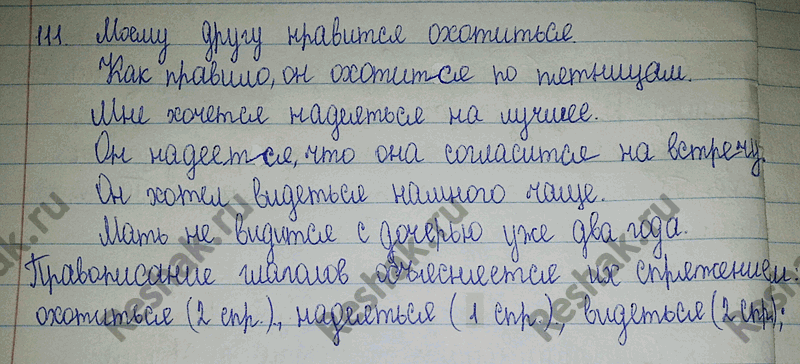 111. Моему другу нравится охотиться.
Как правило, он охотится по петницам.
Мне хочется надеяться на лучшее.
Он надеется, что она согласится на встречу.
Он хотел видеться намного чаще.
Мать не видится с дочерью уже два года.
Правописание глаголов объясняется их спряжением:
охотиться (2 спр.), надеяться (1 спр.), видеться (2 спр);
Reshak.ru
Reshak.ru
Reshak.ru